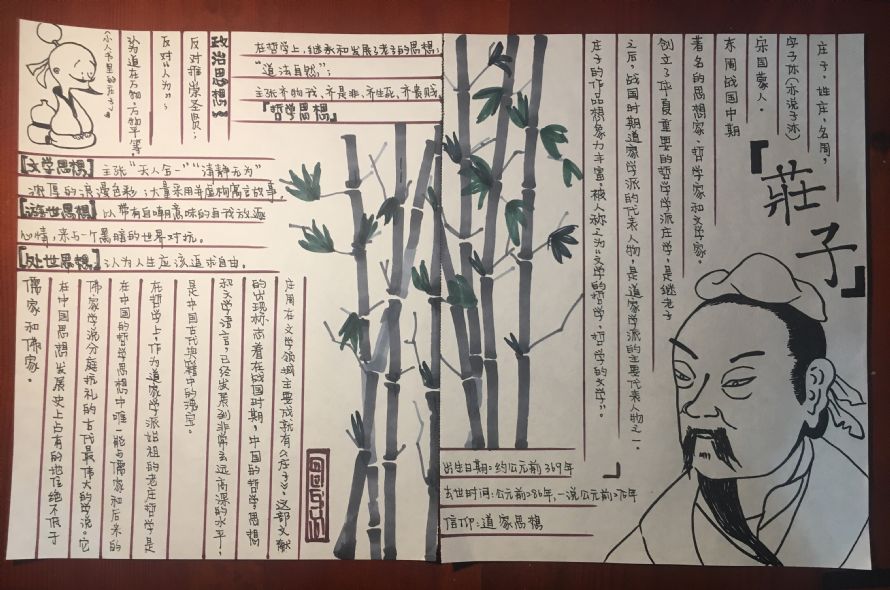 『莊子』
庄子，姓庄，名周，
字子休（亦说子沐）
宋国蒙人。
东周战国中期
著名的思想家、哲学家和文学家。
创立了华夏重要的哲学学派庄学，是继老子
之后，战国时期道家学派的代表人物，是道家学派的主要代表人物之一.
庄子的作品想象力丰富，被人称之为“文学的哲学，哲学的文学”。
出生日期：约公元前369年
去世时间：公元前286年，一说公元前275年
信仰：道家思想
在哲学上，继承和发展了老子的思想，
“道法自然”；
主张齐物我、齐是非、齐生死、齐贵贱。
『哲学思想』
政治思想：
反对推崇圣贤；
反对“人为”；
认为道在万物，万物平等。
【文学思想】主张“天人合一”“清静无为”
浓厚的浪漫色彩，大量采用并虚构寓言故事。
【游世思想】以带有自嘲意味的自我放逐
心情，来与一个黑暗的世界对抗。
【处世思想】认为人生应该追求自由。
庄周在文学领域主要成就有《庄子》，这部文献
的出现标志着在战国时期，中国的哲学思想
和文学语言，已经发展到非常玄远高深的水平，
是中国古代典籍中的瑰宝。
在哲学上，作为道家学派始祖的老庄哲学是
在中国的哲学思想中唯一能与儒家和后来的
佛家学说分庭抗礼的古代最伟大的学说。它
在中国思想发展史上占有的地位绝不低于
儒家和佛家。